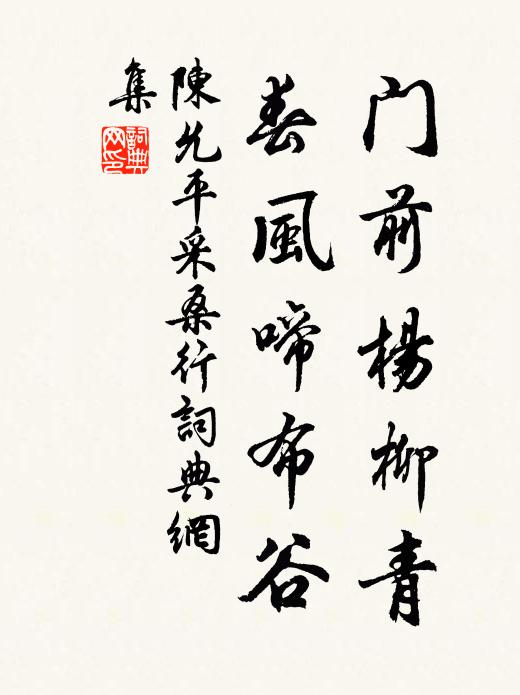 门前楊柳青
春風啼布谷
陳允平采桑行詞典網
集
詞典
网印